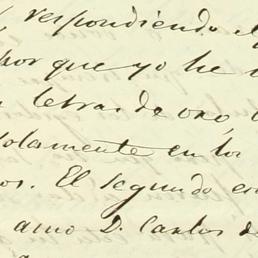 respondiendo el
por que yo he
letras de oro,
solamente en los
os. El segundo en
amo D. Carlos de